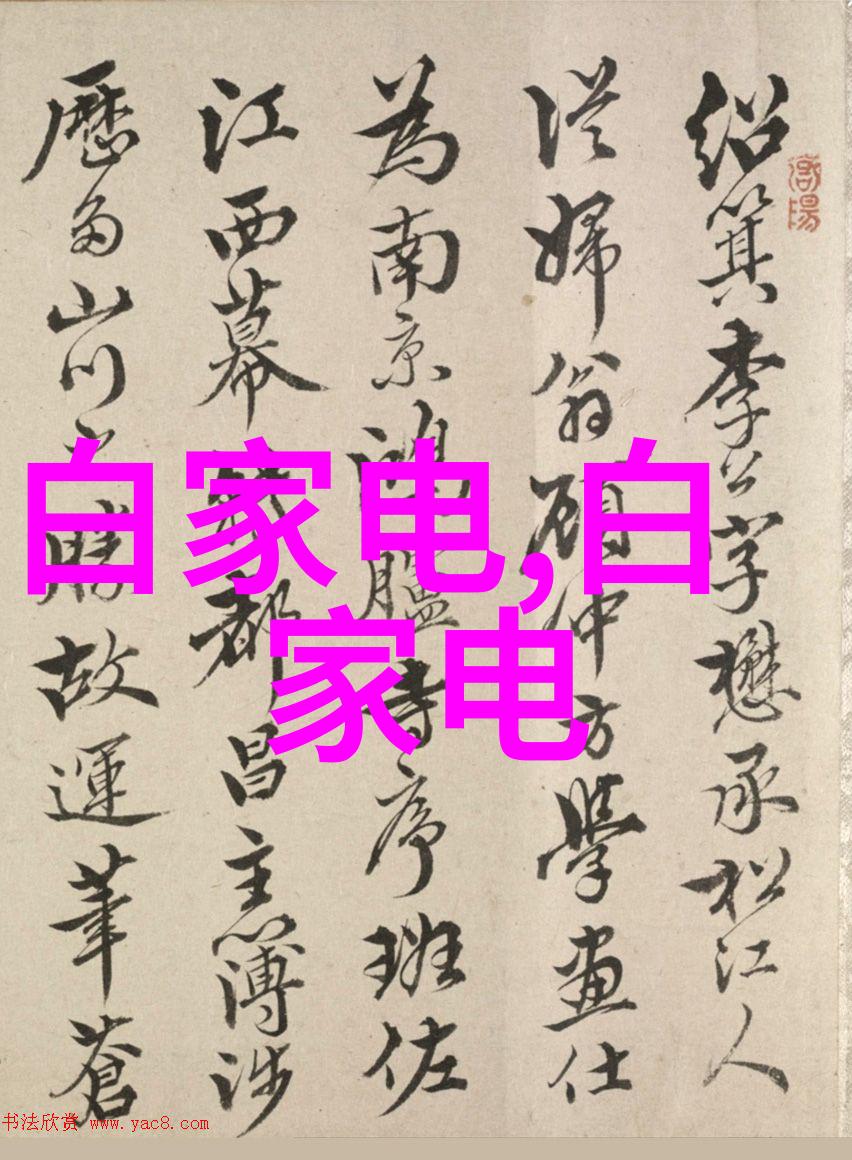 紹箕李公字懋承松江人
從婦翁顧仲方學畫仕
為南京鴻臚寺序班佐
江西幕都昌主簿涉
歷多山川之勝故運筆蒼
白家电,白
家电
书法欣赏 www.yac8.com